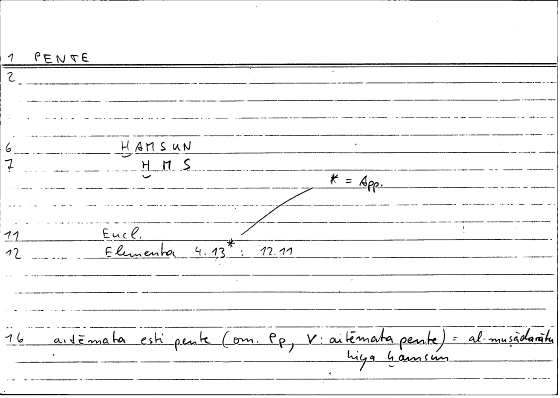 1 PENTE
2
6 ḪAMSUN
7 Ḫ M S
* = App.
11 Eucl.
12 Elementa 4.13*: 12.11
16 aitēmata esti pente (om. Pp, V: aitēmata pente) = al-muṣādarātu
hiya ḫamsun